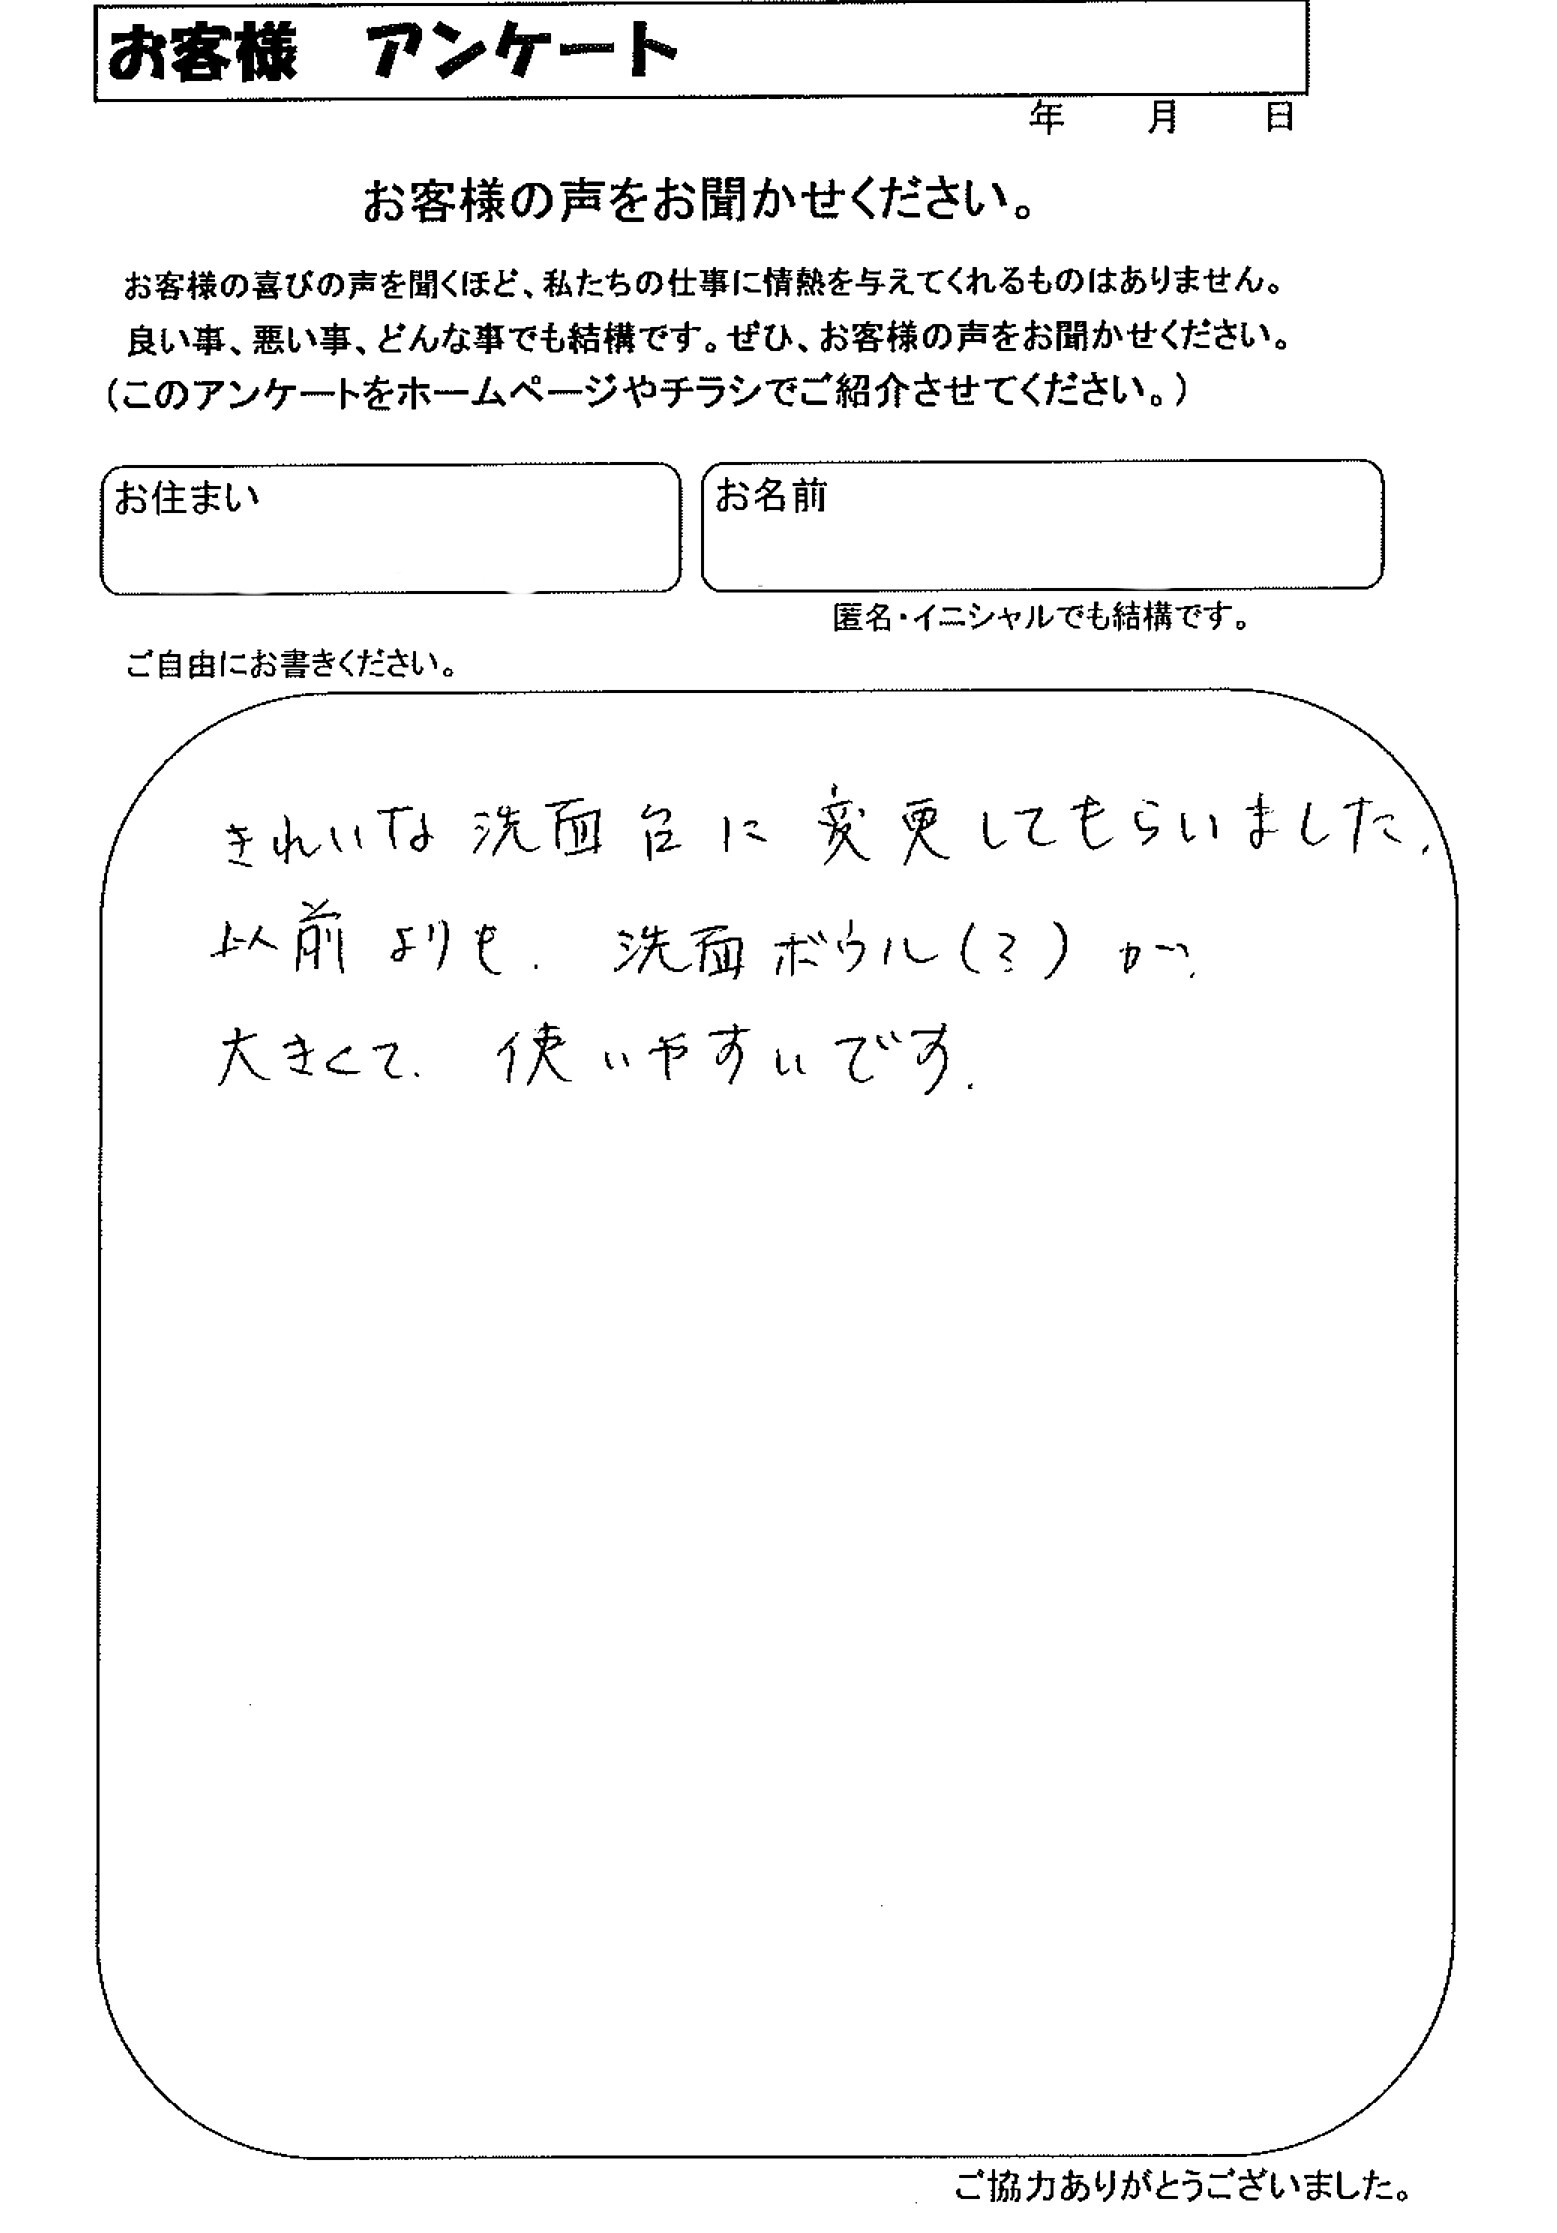 お客様 アンケート
年 月 日
お客様の声をお聞かせください。
お客様の喜びの声を聞くほど、私たちの仕事に情熱を与えてくれるものはありません。
良い事、悪い事、どんな事でも結構です。ぜひ、お客様の声をお聞かせください。
(このアンケートをホームページやチラシでご紹介させてください。)
お住まい
お名前
匿名・イニシャルでも結構です。
ご自由にお書きください。
きれいな洗面台に変更してもらいました。
以前よりも、洗面ボウル(?)が、
大きくて、使いやすいです。
ご協力ありがとうございました。